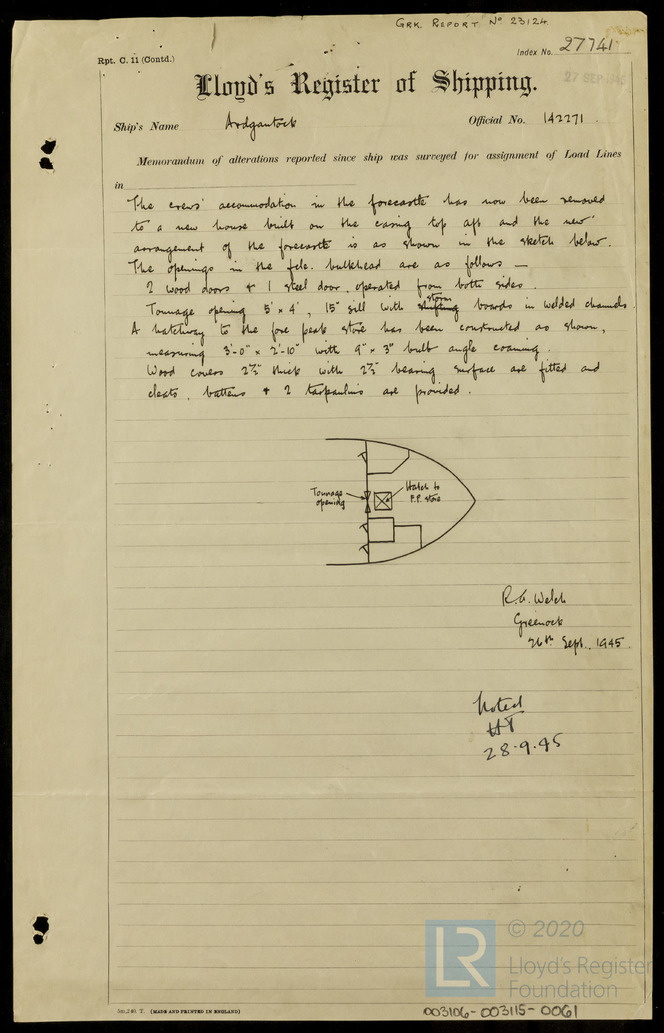 GRK. REPORT No 23124.
Index No. 27741
Rpt. C. 11 (Contd.)
27 SEP 1945
Lloyd's Register of Shipping.
Ship's Name Ardgantock Official No. 142271.
Memorandum of alterations reported since ship was surveyed for assignment of Load Lines
in
The crews' accommodation in the forecastle has now been removed
to a new house built on the casing top aft and the new
arrangement of the forecastle is as shown in the sketch below.
The openings in the fcle. bulkhead are as follows —
2 wood doors & 1 steel door, operated from both sides.
Tonnage opening 5' x 4', 15" sill with shifting storm boards in welded channels.
A hatchway to the fore peak store has been constructed as shown,
measuring 3'-0" x 2'-10" with 9" x 3" built angle coaming.
Wood covers 2½" thick with 2½" bearing surface are fitted and
cleats, battens & 2 tarpaulins are provided.
Tonnage
opening
Hatch to
F.P. store
R.G. Welch
Greenock
26th Sept., 1945.
Noted
HT
28.9.45
© 2020
LR
Lloyd's Register
Foundation
(MADE AND PRINTED IN ENGLAND)
003106-003115-0061